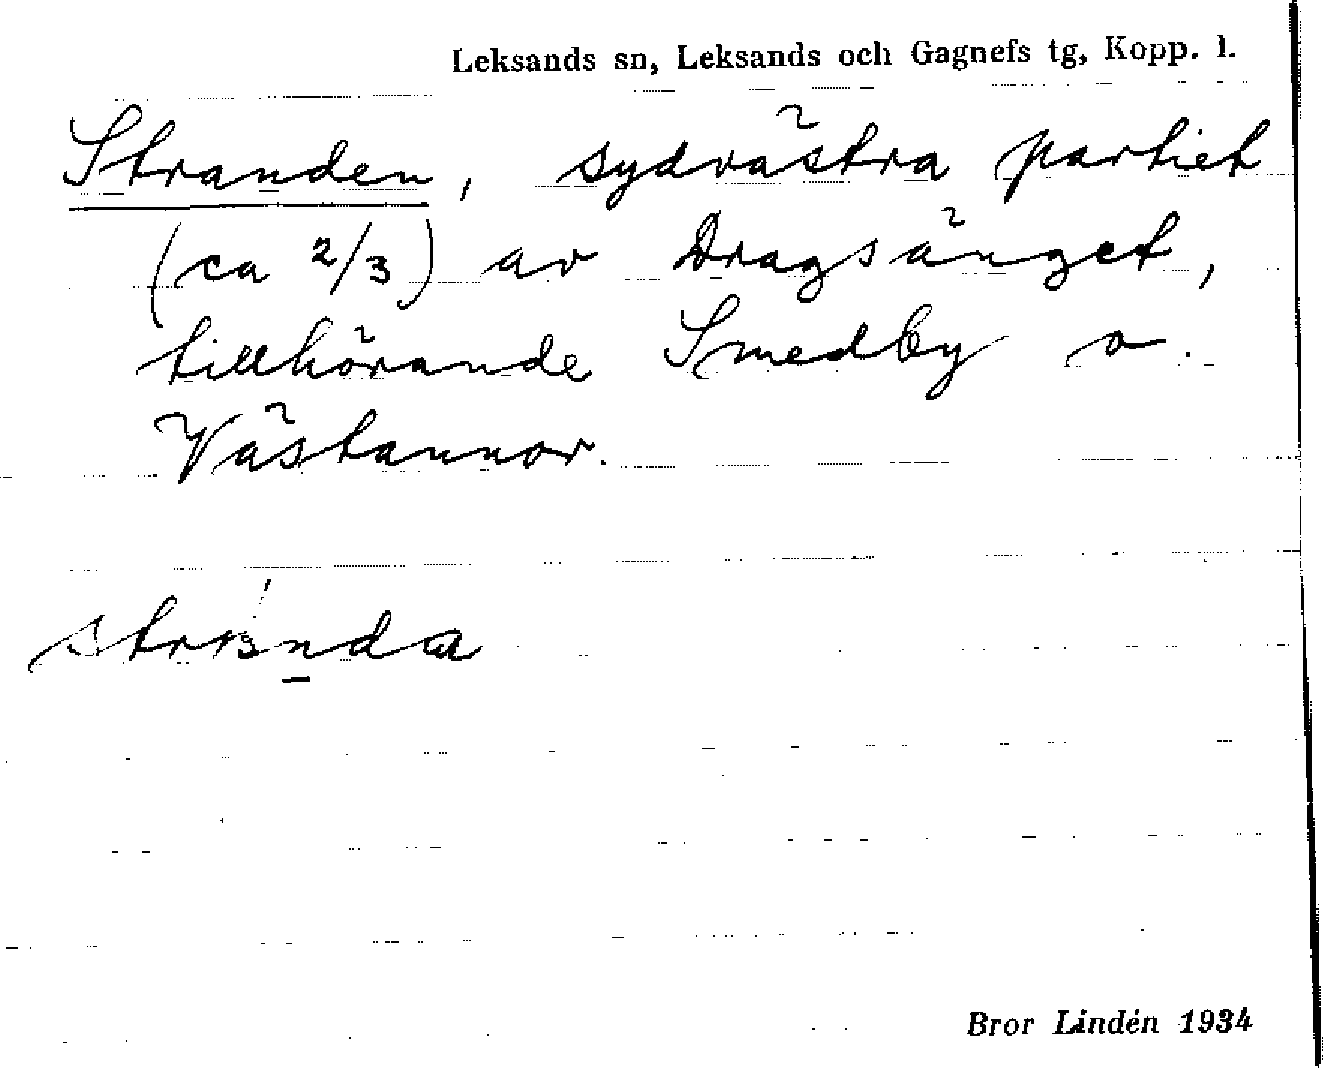 Leksands sn, Leksands och Gagnefs tg, Kopp. l.
Stranden, sydvästra partiet
(ca 2/3) av Dragsänget,
tillhörande Smedby o.
Västannor.
Bror Lindén 1934